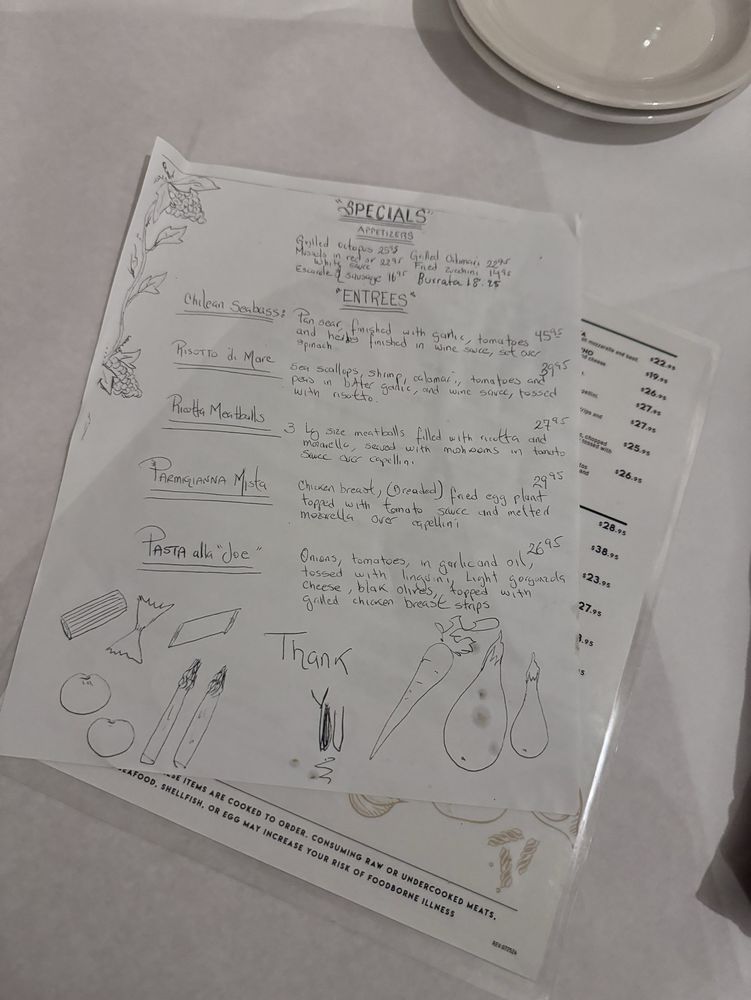 "SPECIALS"
APPETIZERS
Grilled octopus 25⁹⁵ Grilled Calamari 22⁹⁵
Mussels in red or 22⁹⁵ Fried zucchini 14⁹⁵
White sauce
Escarole & sausage 16⁹⁵ Burrata 18.95
"ENTREES"
Chilean Seabass:
Pan sear, finished with garlic, tomatoes 45⁹⁵
and herbs finished in wine sauce, set over
spinach.
Risotto di Mare
39⁹⁵
Sea scallops, shrimp, calamari, tomatoes and
peas in butter garlic, and wine sauce, tossed
with risotto.
Ricotta Meatballs
27⁹⁵
3 lg size meatballs filled with ricotta and
mozarella, served with mushrooms in tomato
sauce over capellini
PARMIGIANNA Mista
29⁹⁵
Chicken breast, (Breaded) fried egg plant
topped with tomato sauce and melted
mozarella over capellini
PASTA alla "Joe"
26⁹⁵
Onions, tomatoes, in garlic and oil,
tossed with linguini, Light gorgonzola
cheese, blak olives, topped with
grilled chicken breast strips
Thank
You
mozzarella and basil. $22.95
cheese $19.95
$26.95
$27.95
$27.95
chopped
tossed with $25.95
and $26.95
$28.95
$38.95
$23.95
27.95
.95
ESE ITEMS ARE COOKED TO ORDER. CONSUMING RAW OR UNDERCOOKED MEATS,
SEAFOOD, SHELLFISH, OR EGG MAY INCREASE YOUR RISK OF FOODBORNE ILLNESS
REV 072524